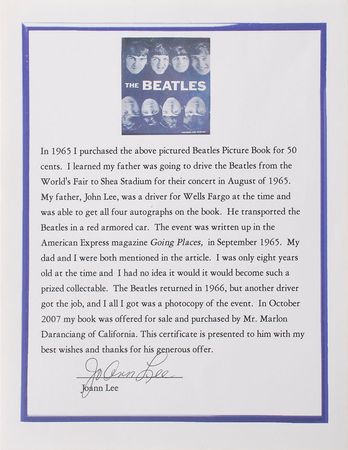 THE BEATLES
In 1965 I purchased the above pictured Beatles Picture Book for 50
cents. I learned my father was going to drive the Beatles from the
World's Fair to Shea Stadium for their concert in August of 1965.
My father, John Lee, was a driver for Wells Fargo at the time and
was able to get all four autographs on the book. He transported the
Beatles in a red armored car. The event was written up in the
American Express magazine Going Places, in September 1965. My
dad and I were both mentioned in the article. I was only eight years
old at the time and I had no idea it would it would become such a
prized collectable. The Beatles returned in 1966, but another driver
got the job, and I all I got was a photocopy of the event. In October
2007 my book was offered for sale and purchased by Mr. Marlon
Daranciang of California. This certificate is presented to him with my
best wishes and thanks for his generous offer.
JoAnn Lee
Joann Lee